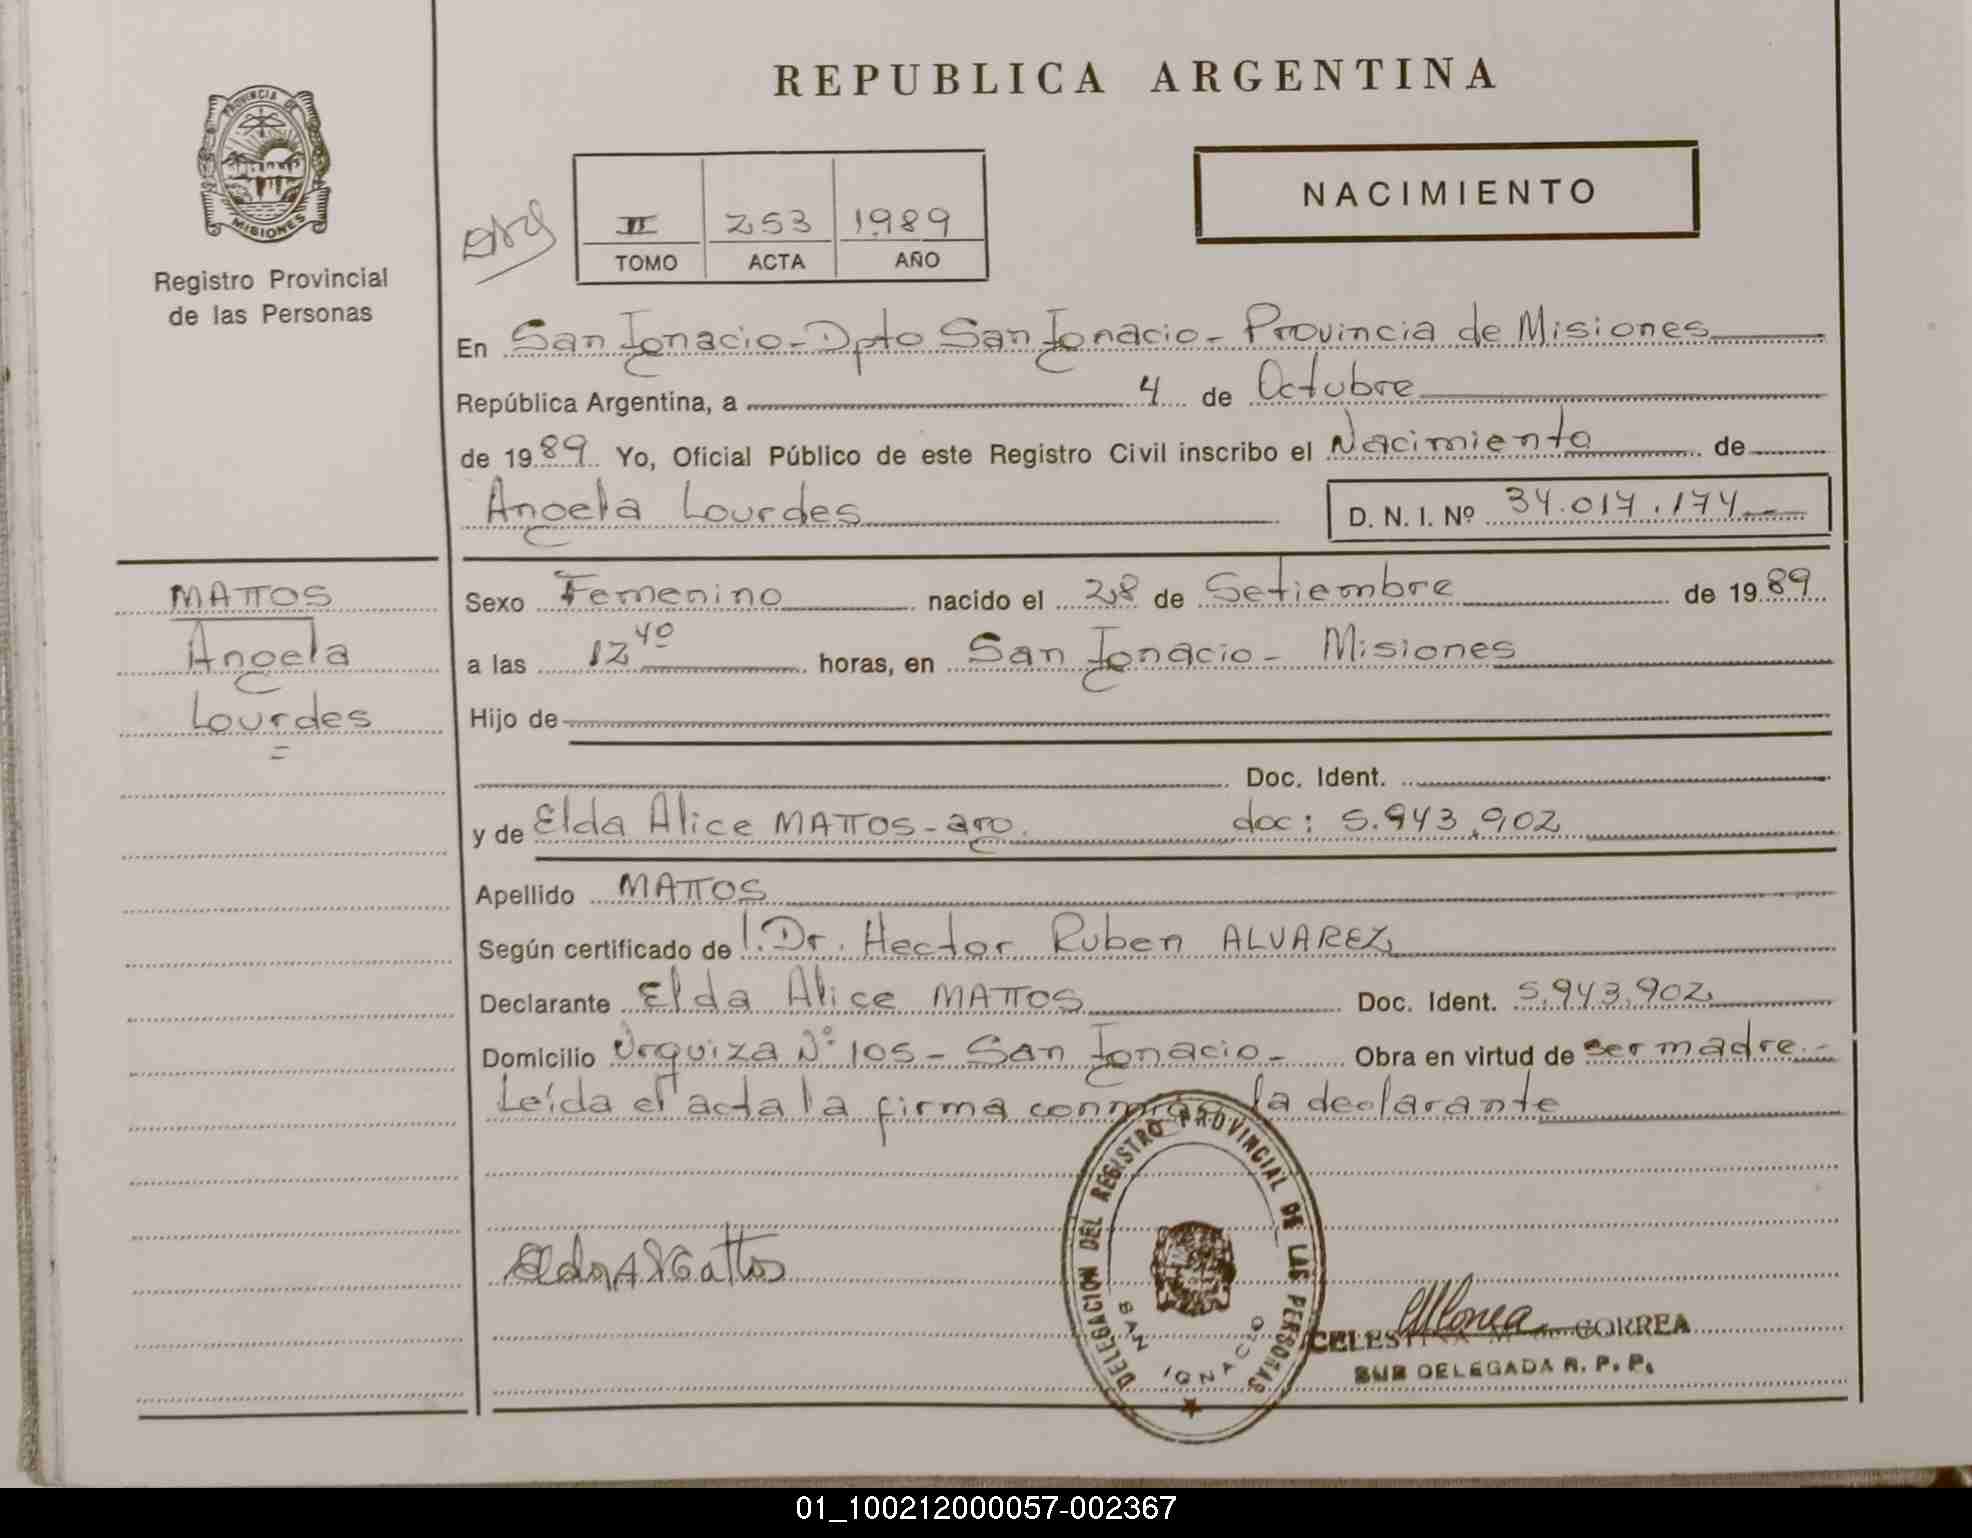 REPUBLICA ARGENTINA
PROVINCIA DE
MISIONES
Registro Provincial
de las Personas
NACIMIENTO
II 253 1989
TOMO ACTA AÑO
En San Ignacio - Dpto San Ignacio - Provincia de Misiones
República Argentina, a 4 de Octubre
de 1989 Yo, Oficial Público de este Registro Civil inscribo el Nacimiento de
Angela Lourdes D. N. I. Nº 34.017.174
MATTOS
Angela
Lourdes
=
Sexo Femenino nacido el 28 de Setiembre de 1989
a las 12 40 horas, en San Ignacio - Misiones
Hijo de
Doc. Ident.
y de Elda Alice MATTOS - arg. doc: 5.943.902
Apellido MATTOS
Según certificado de l. Dr. Hector Ruben ALVAREZ
Declarante Elda Alice MATTOS Doc. Ident. 5.943.902
Domicilio Urquiza Nº 105 - San Ignacio - Obra en virtud de ser madre.-
Leída el acta la firma conmigo la declarante
DELEGACION DEL REGISTRO PROVINCIAL DE LAS PERSONAS
SAN IGNACIO
Elda A Mattos
CORREA
SUB DELEGADA R. P. P.
01_100212000057-002367